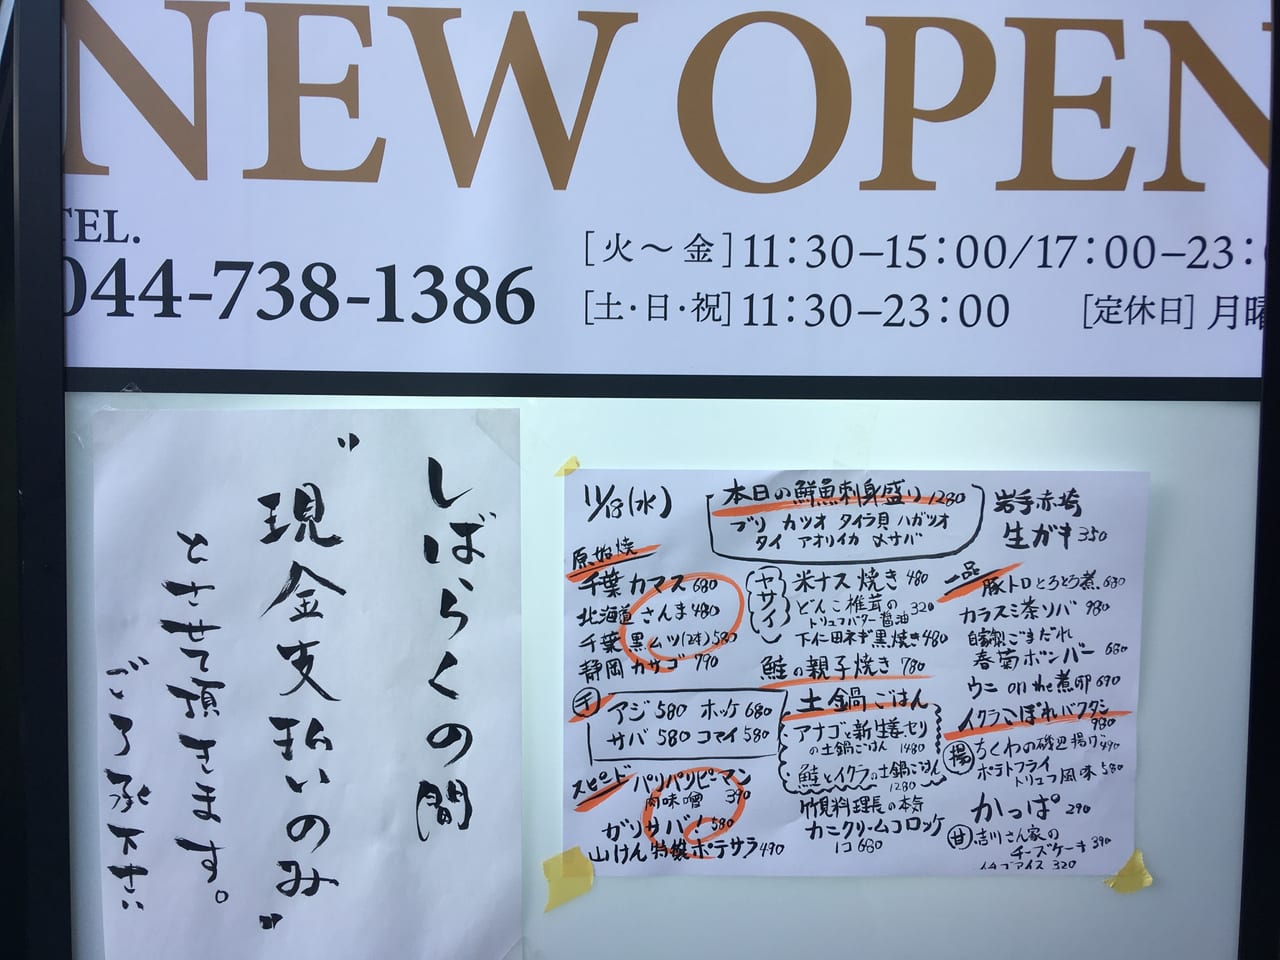 NEW OPEN
TEL.
044-738-1386
[火～金]11：30－15：00/17：00－23：
[土・日・祝]11：30－23：00
[定休日]月曜
しばらくの間
"現金支払いのみ"
とさせて頂きます。
ご了承下さい
11/18(水)
本日の鮮魚刺身盛り 1280
ブリ カツオ タイラ貝 ハガツオ
タイ アオリイカ 〆サバ
岩手赤崎
生ガキ 350
原始焼
千葉カマス 680
北海道さんま 480
千葉黒ムツ(2本) 580
静岡カサゴ 790
アジ 580 ホッケ 680
サバ 580 コマイ 580
スピード
パリパリピーマン
肉味噌 390
ガリサバ！ 580
山けん特製ポテサラ 490
ヤサイ
米ナス焼き 480
どんこ椎茸の
トリュフバター醤油 320
下仁田ネギ黒焼き 480
鮭の親子焼き 780
土鍋ごはん
アナゴと新生姜、セリ
の土鍋ごはん 1480
鮭とイクラの土鍋ごはん
1280
竹見料理長の本気
カニクリームコロッケ
1コ 680
一品
豚トロとろとろ煮 680
カラスミ茶ソバ 980
自家製ごまだれ
春菊ボンバー 680
ウニ on the 煮卵 690
イクラこぼれバクダン
980
揚
ちくわの磯辺揚げ 490
ポテトフライ
トリュフ風味 580
かっぱ 290
甘
吉川さん家の
チーズケーキ 390
アイス 320